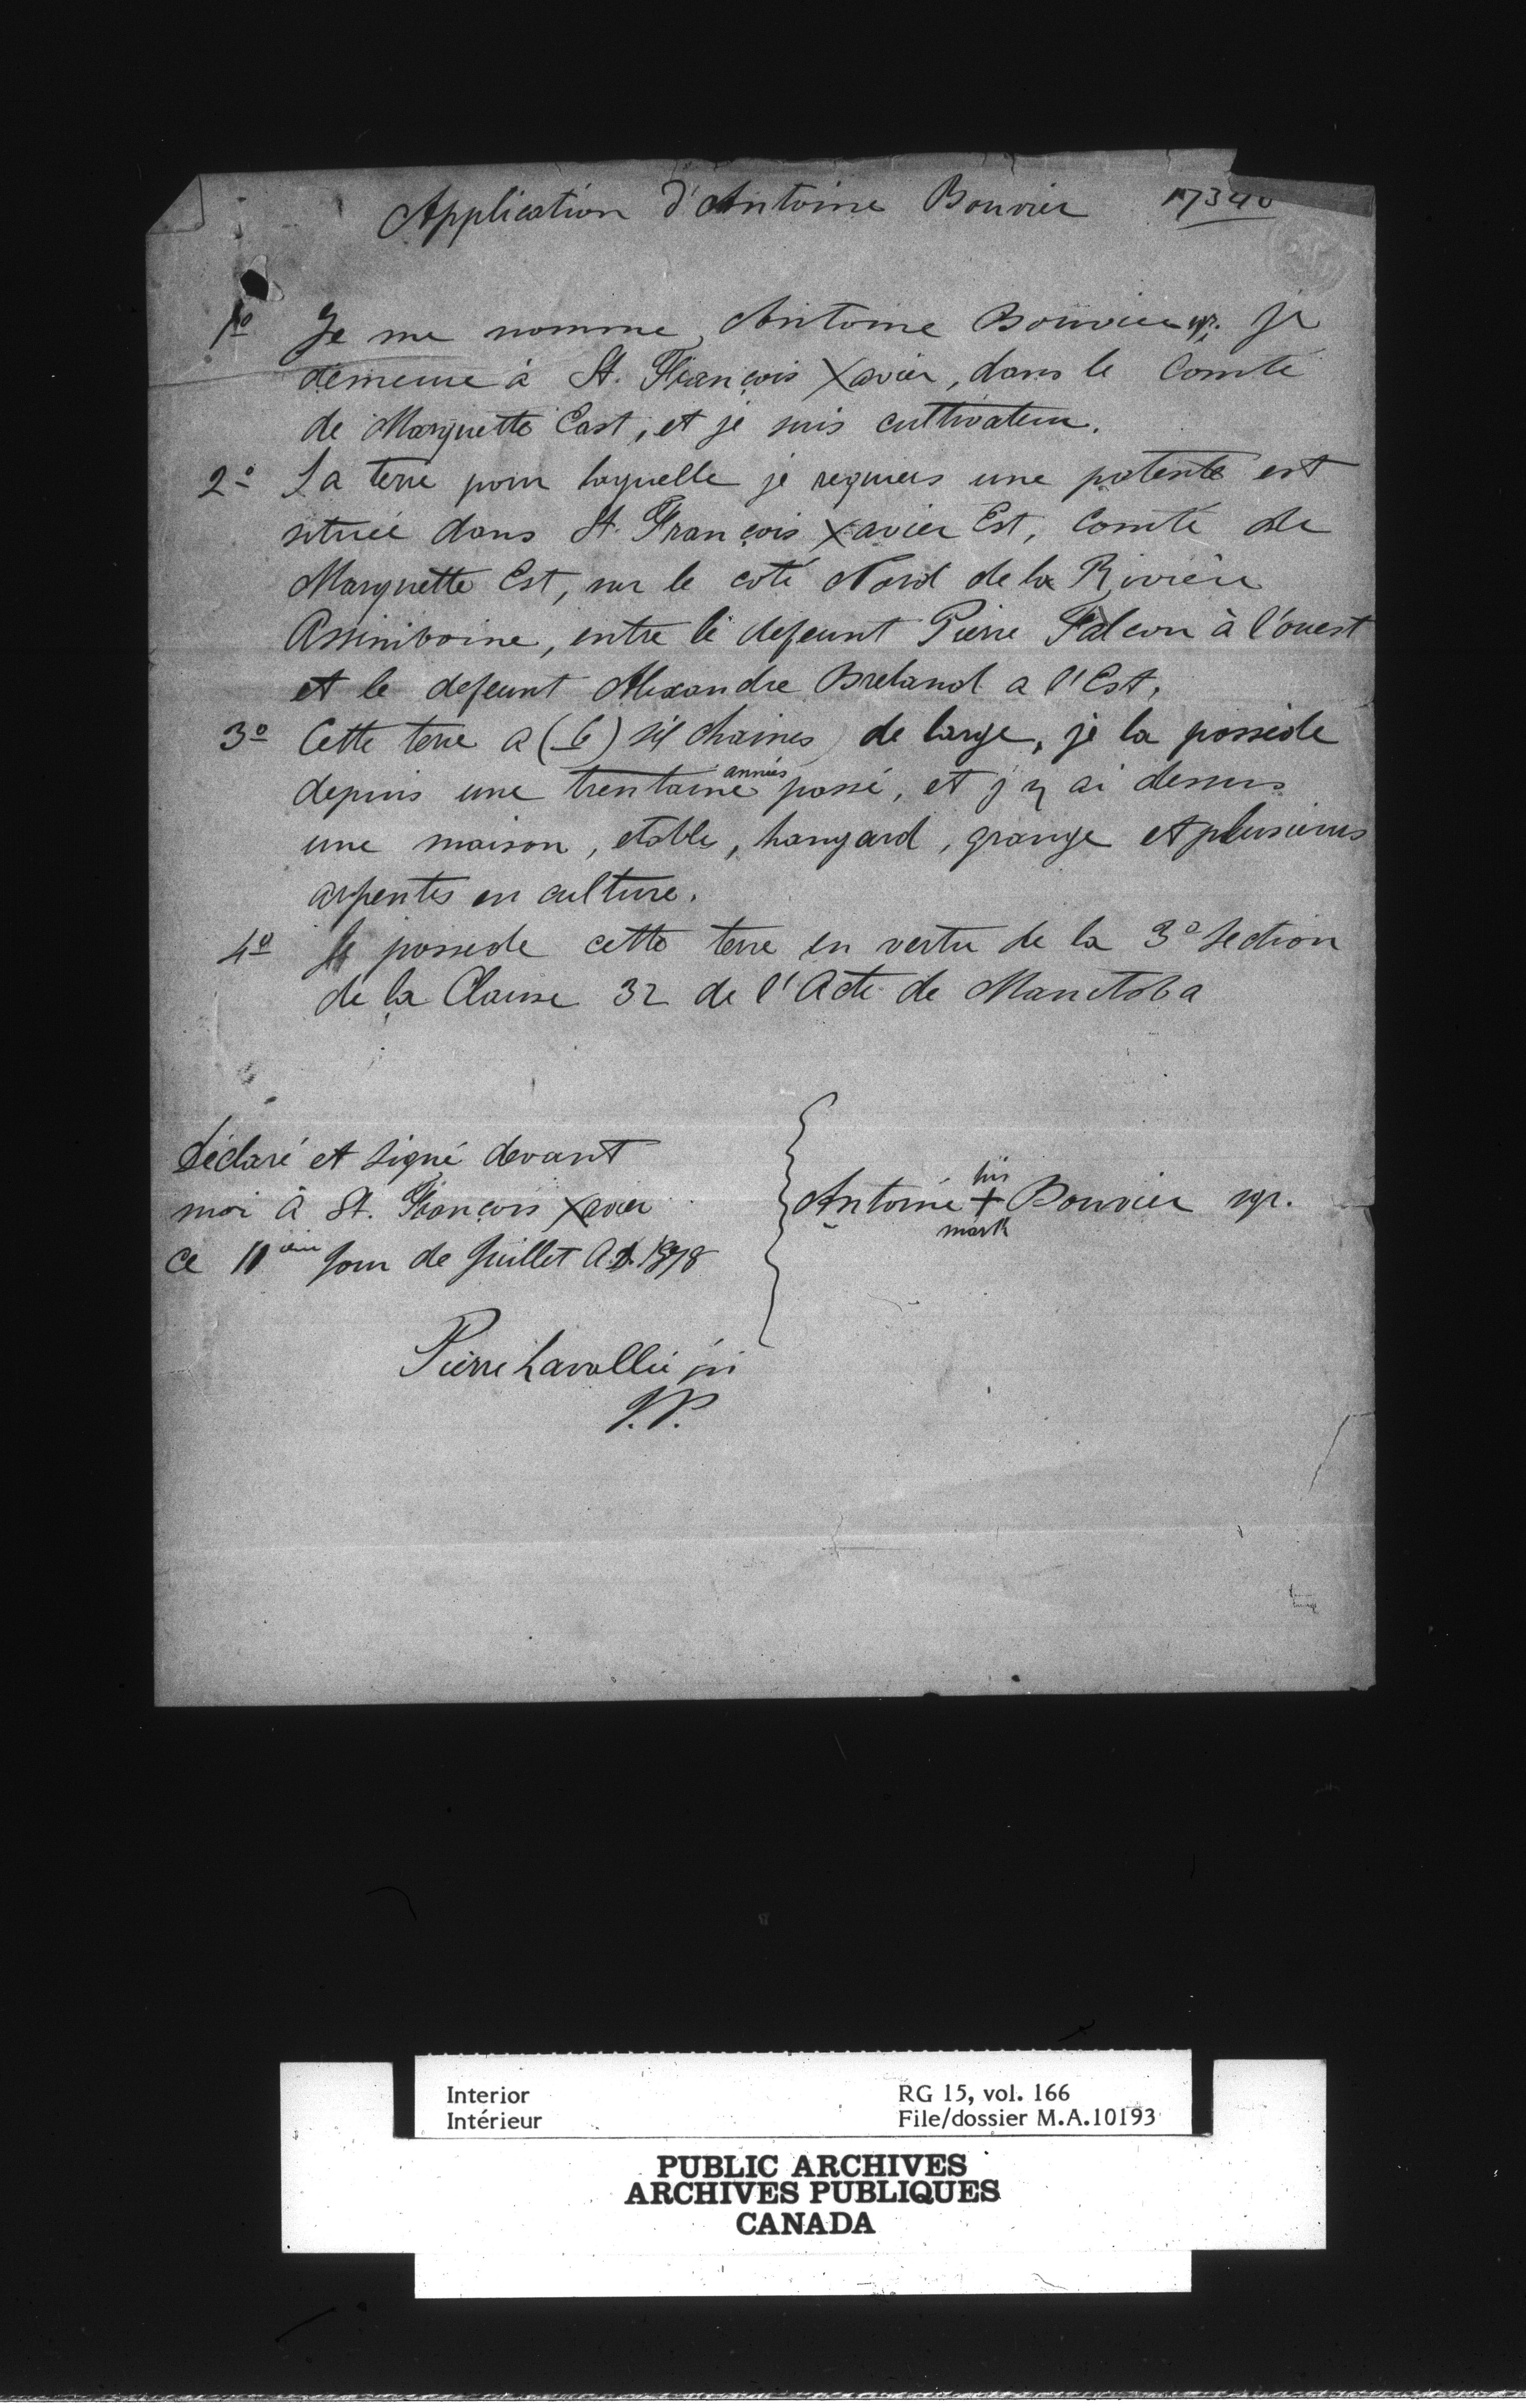 Application d'Antoine Bouvier 17340
1º Je me nomme Antoine Bouvier sgr. je
demeure à St. François Xavier, dans le Comté
de Marquette East, et je suis cultivateur.
2º La terre pour laquelle je requiers une patente est
située dans St. François Xavier Est, Comté de
Marquette Est, sur le coté Nord de la Rivière
Assiniboine, entre le defeunt Pierre Falcon à l'ouest
et le defeunt Alexandre Breland a l'Est.
3º Cette terre a (6) six chaines de large, je la possède
depuis une trentaine années passé, et j'y ai dessus
une maison, etable, hangard, grange et plusieurs
arpents en culture.
4º Je possede cette terre en vertu de la 3º Section
de la Clause 32 de l'Acte de Manitoba
Déclaré et signé devant
moi à St. François Xavier
ce 11ème jour de Juillet A.D. 1878
Antoine his + mark Bouvier sgr.
Pierre Lavallée jr
J.P.
Interior RG 15, vol. 166
Intérieur File/dossier M.A.10193
PUBLIC ARCHIVES
ARCHIVES PUBLIQUES
CANADA